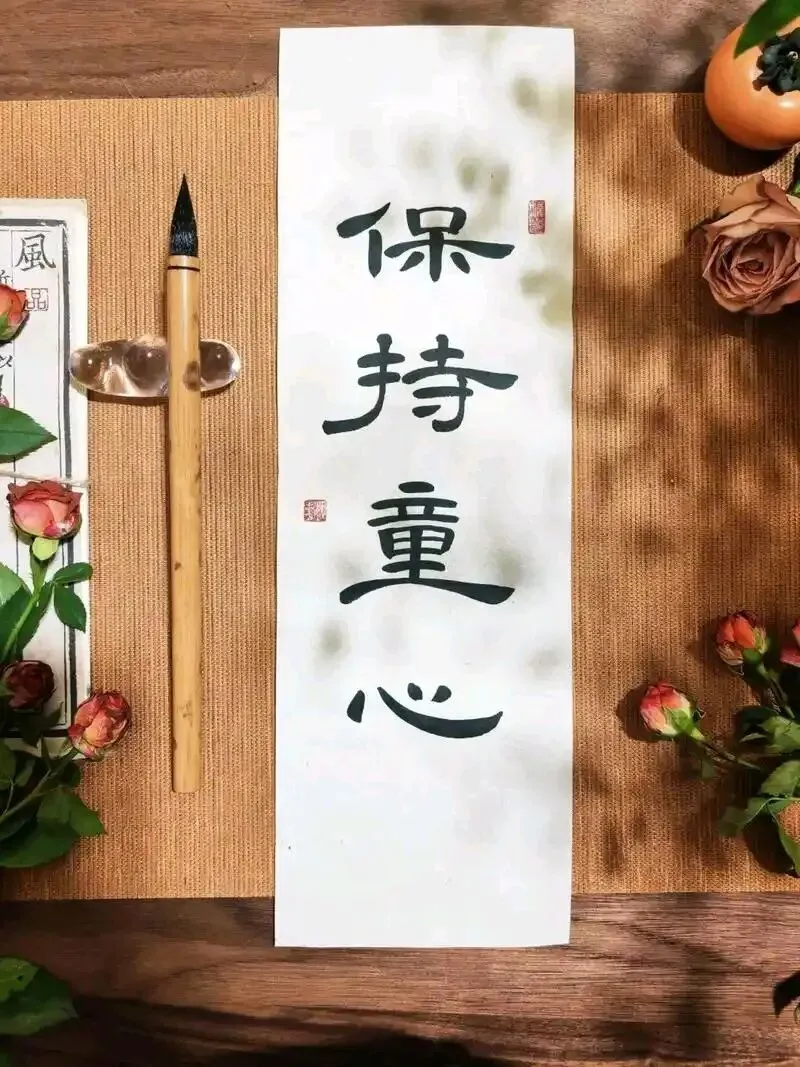 保持童心
風
品